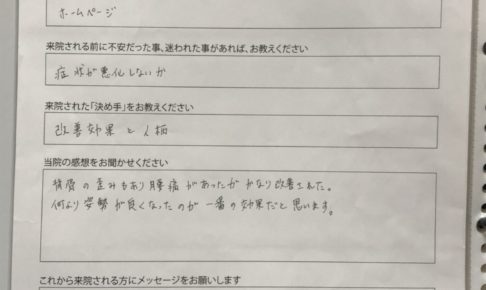 ホームページ
来院される前に不安だった事、迷われた事があれば、お教えください
症状が悪化しないか
来院された「決め手」をお教えください
改善効果と人柄
当院の感想をお聞かせください
の歪みもあり腰痛があったがかなり改善された。
何より姿勢が良くなったのが一番の効果だと思います。
これから来院される方にメッセージをお願いします